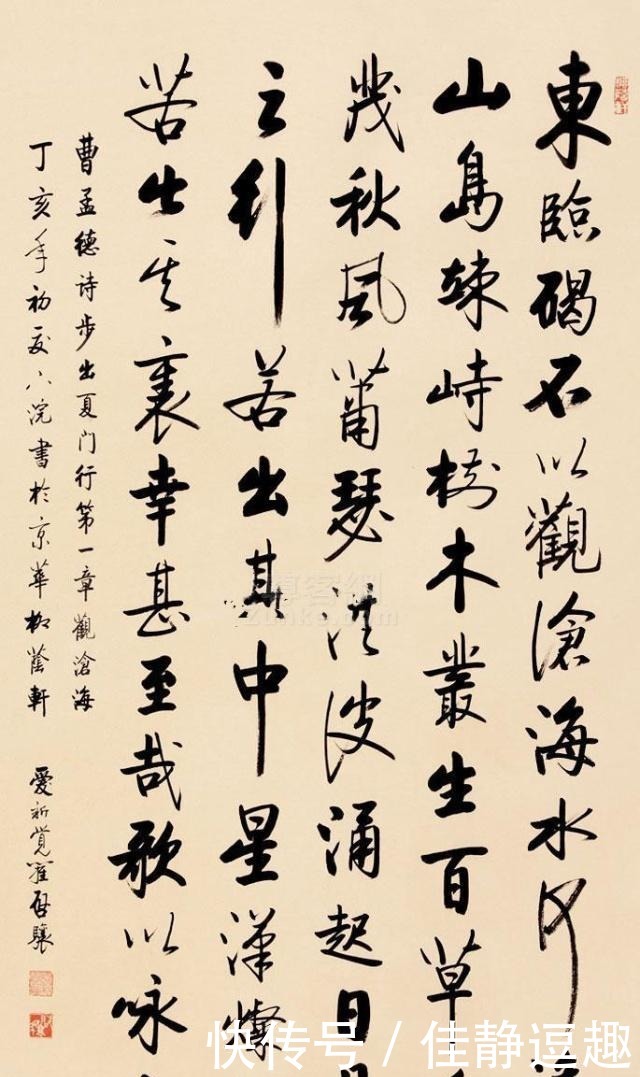 東臨碣石以觀滄海水何
山島竦峙樹木叢生百草
茂秋風蕭瑟洪波涌起日
之行若出其中星漢燦
若出其裏幸甚至哉歌以咏
曹孟德诗步出夏门行第一章觀滄海
丁亥年初夏浣書於京華柳蔭軒 愛新覺羅啟驤
尊客網
Zunke.com
快传号 / 佳静逗趣